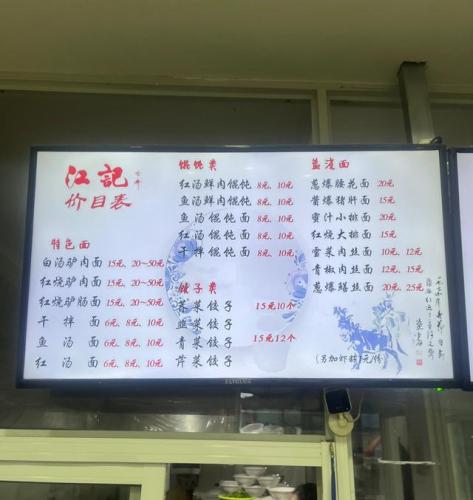 江記
价目表
特色面
白汤驴肉面 15元、20~50元
红烧驴肉面 15元、20~50元
红烧驴肠面 15元、20~50元
干拌面 6元、8元、10元
鱼汤面 6元、8元、10元
红汤面 6元、8元、10元
馄饨类
红汤鲜肉馄饨 8元、10元
鱼汤鲜肉馄饨 8元、10元
鱼汤馄饨面 8元、10元
红汤馄饨面 8元、10元
干拌馄饨 8元、10元
饺子类
荠菜饺子 15元10个
韭菜饺子
青菜饺子 15元12个
芹菜饺子
盖浇面
葱爆腰花面 20元
酱爆猪肝面 15元
蜜汁小排面 20元
红烧大排面 15元
雪菜肉丝面 10元、12元
青椒肉丝面 12元、15元
葱爆鳝丝面 20元、25元
(另加虾籽1元/份)